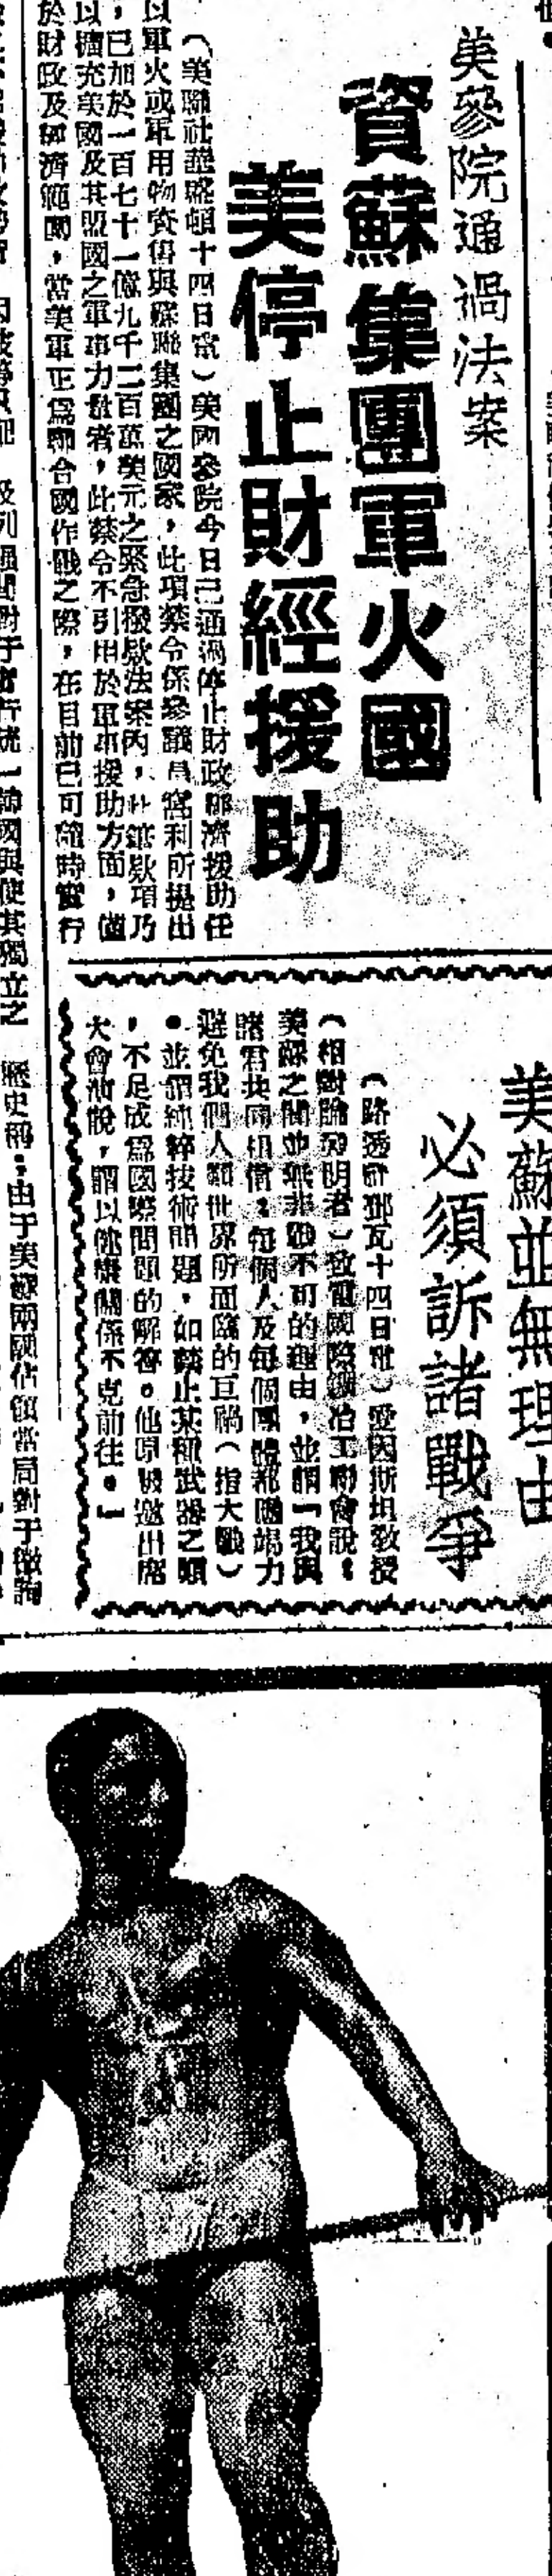 美參院通過法案
資蘇集團軍火國
美停止財經援助
（美聯社華盛頓十四日電）美國參院今日已通過停止財政經濟援助任
以軍火或軍用物資售與蘇聯集團之國家，此項禁令係參議員寫利所提出
，已加於一百七十一億九千二百萬美元之緊急撥款法案內，此筆款項乃
以擴充美國及其盟國之軍事力量者，此禁令不引用於軍事援助方面，僅
於財政及經濟範圍，當美軍正為聯合國作戰之際，在目前已可隨時實行
美蘇並無理由
必須訴諸戰爭
（路透社鄧瓦十四日電）愛因斯坦教授
（相對論發明者）致電國際鍛冶工聯會說：
美蘇之間並無非戰不可的理由，並謂「我與
諸君共同相信：每個人及每個團體都應竭力
避免我們人類世界所面臨的巨禍（指大戰）
。並謂純粹技術問題，如禁止某種武器之類
，不足成為國際問題的解答。他原被邀出席
大會演說，謂以健康關係不克前往。」
統一韓國與使其獨立之
歷史稱：由于美蘇兩國佔領當局對于徵詢